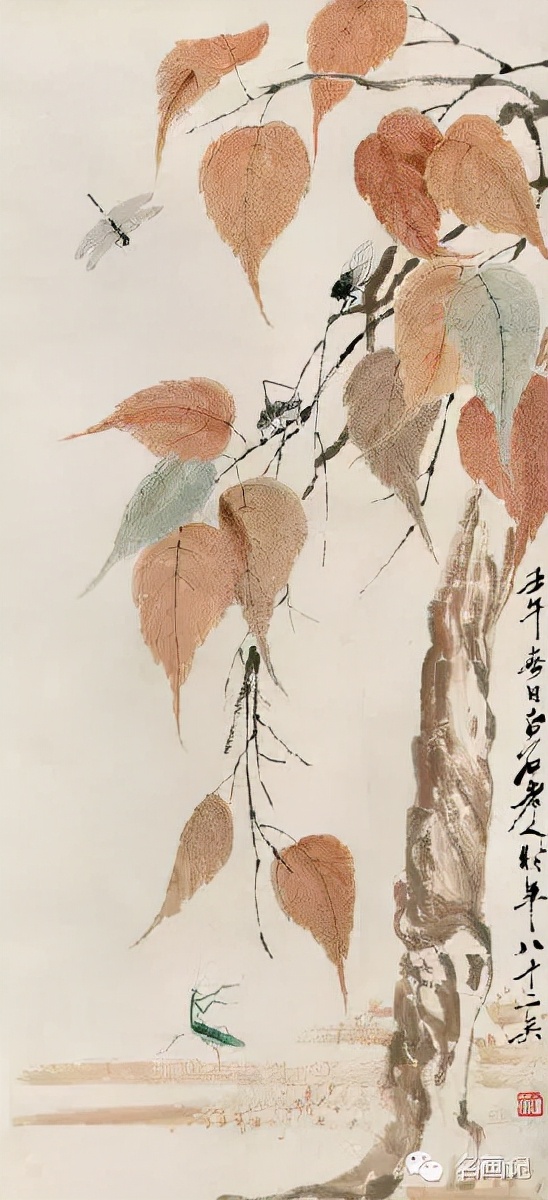 壬午春日白石老人时年八十二矣
名画吧